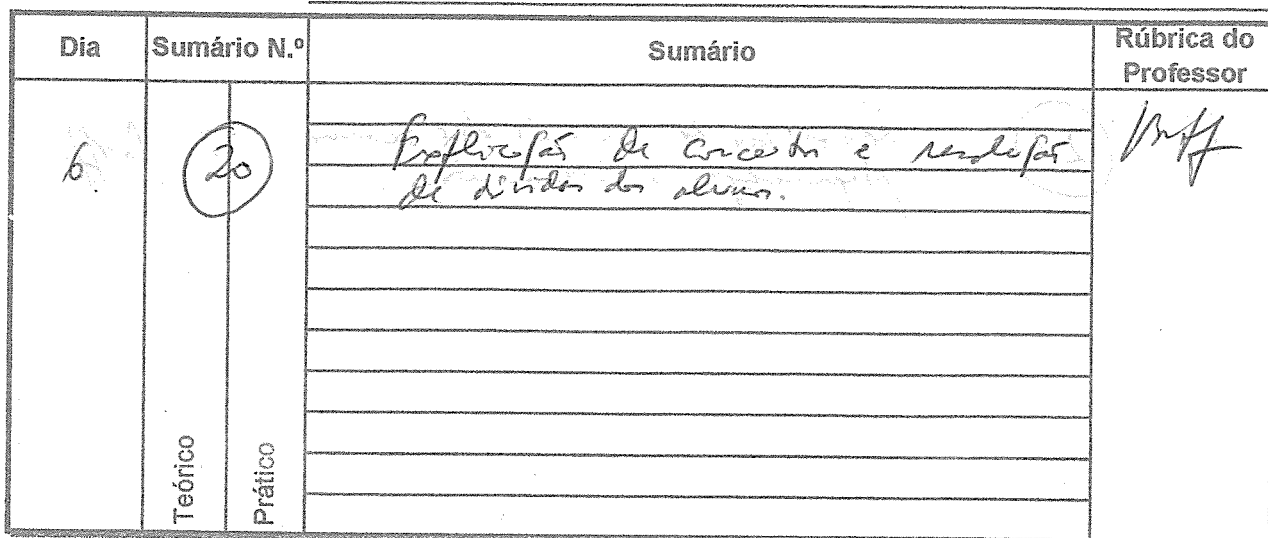 Dia Sumário N.º Sumário Rúbrica do Professor
6. 20 Explicação de conceitos e resolução
de dúvidas dos alunos.
Teórico Prático